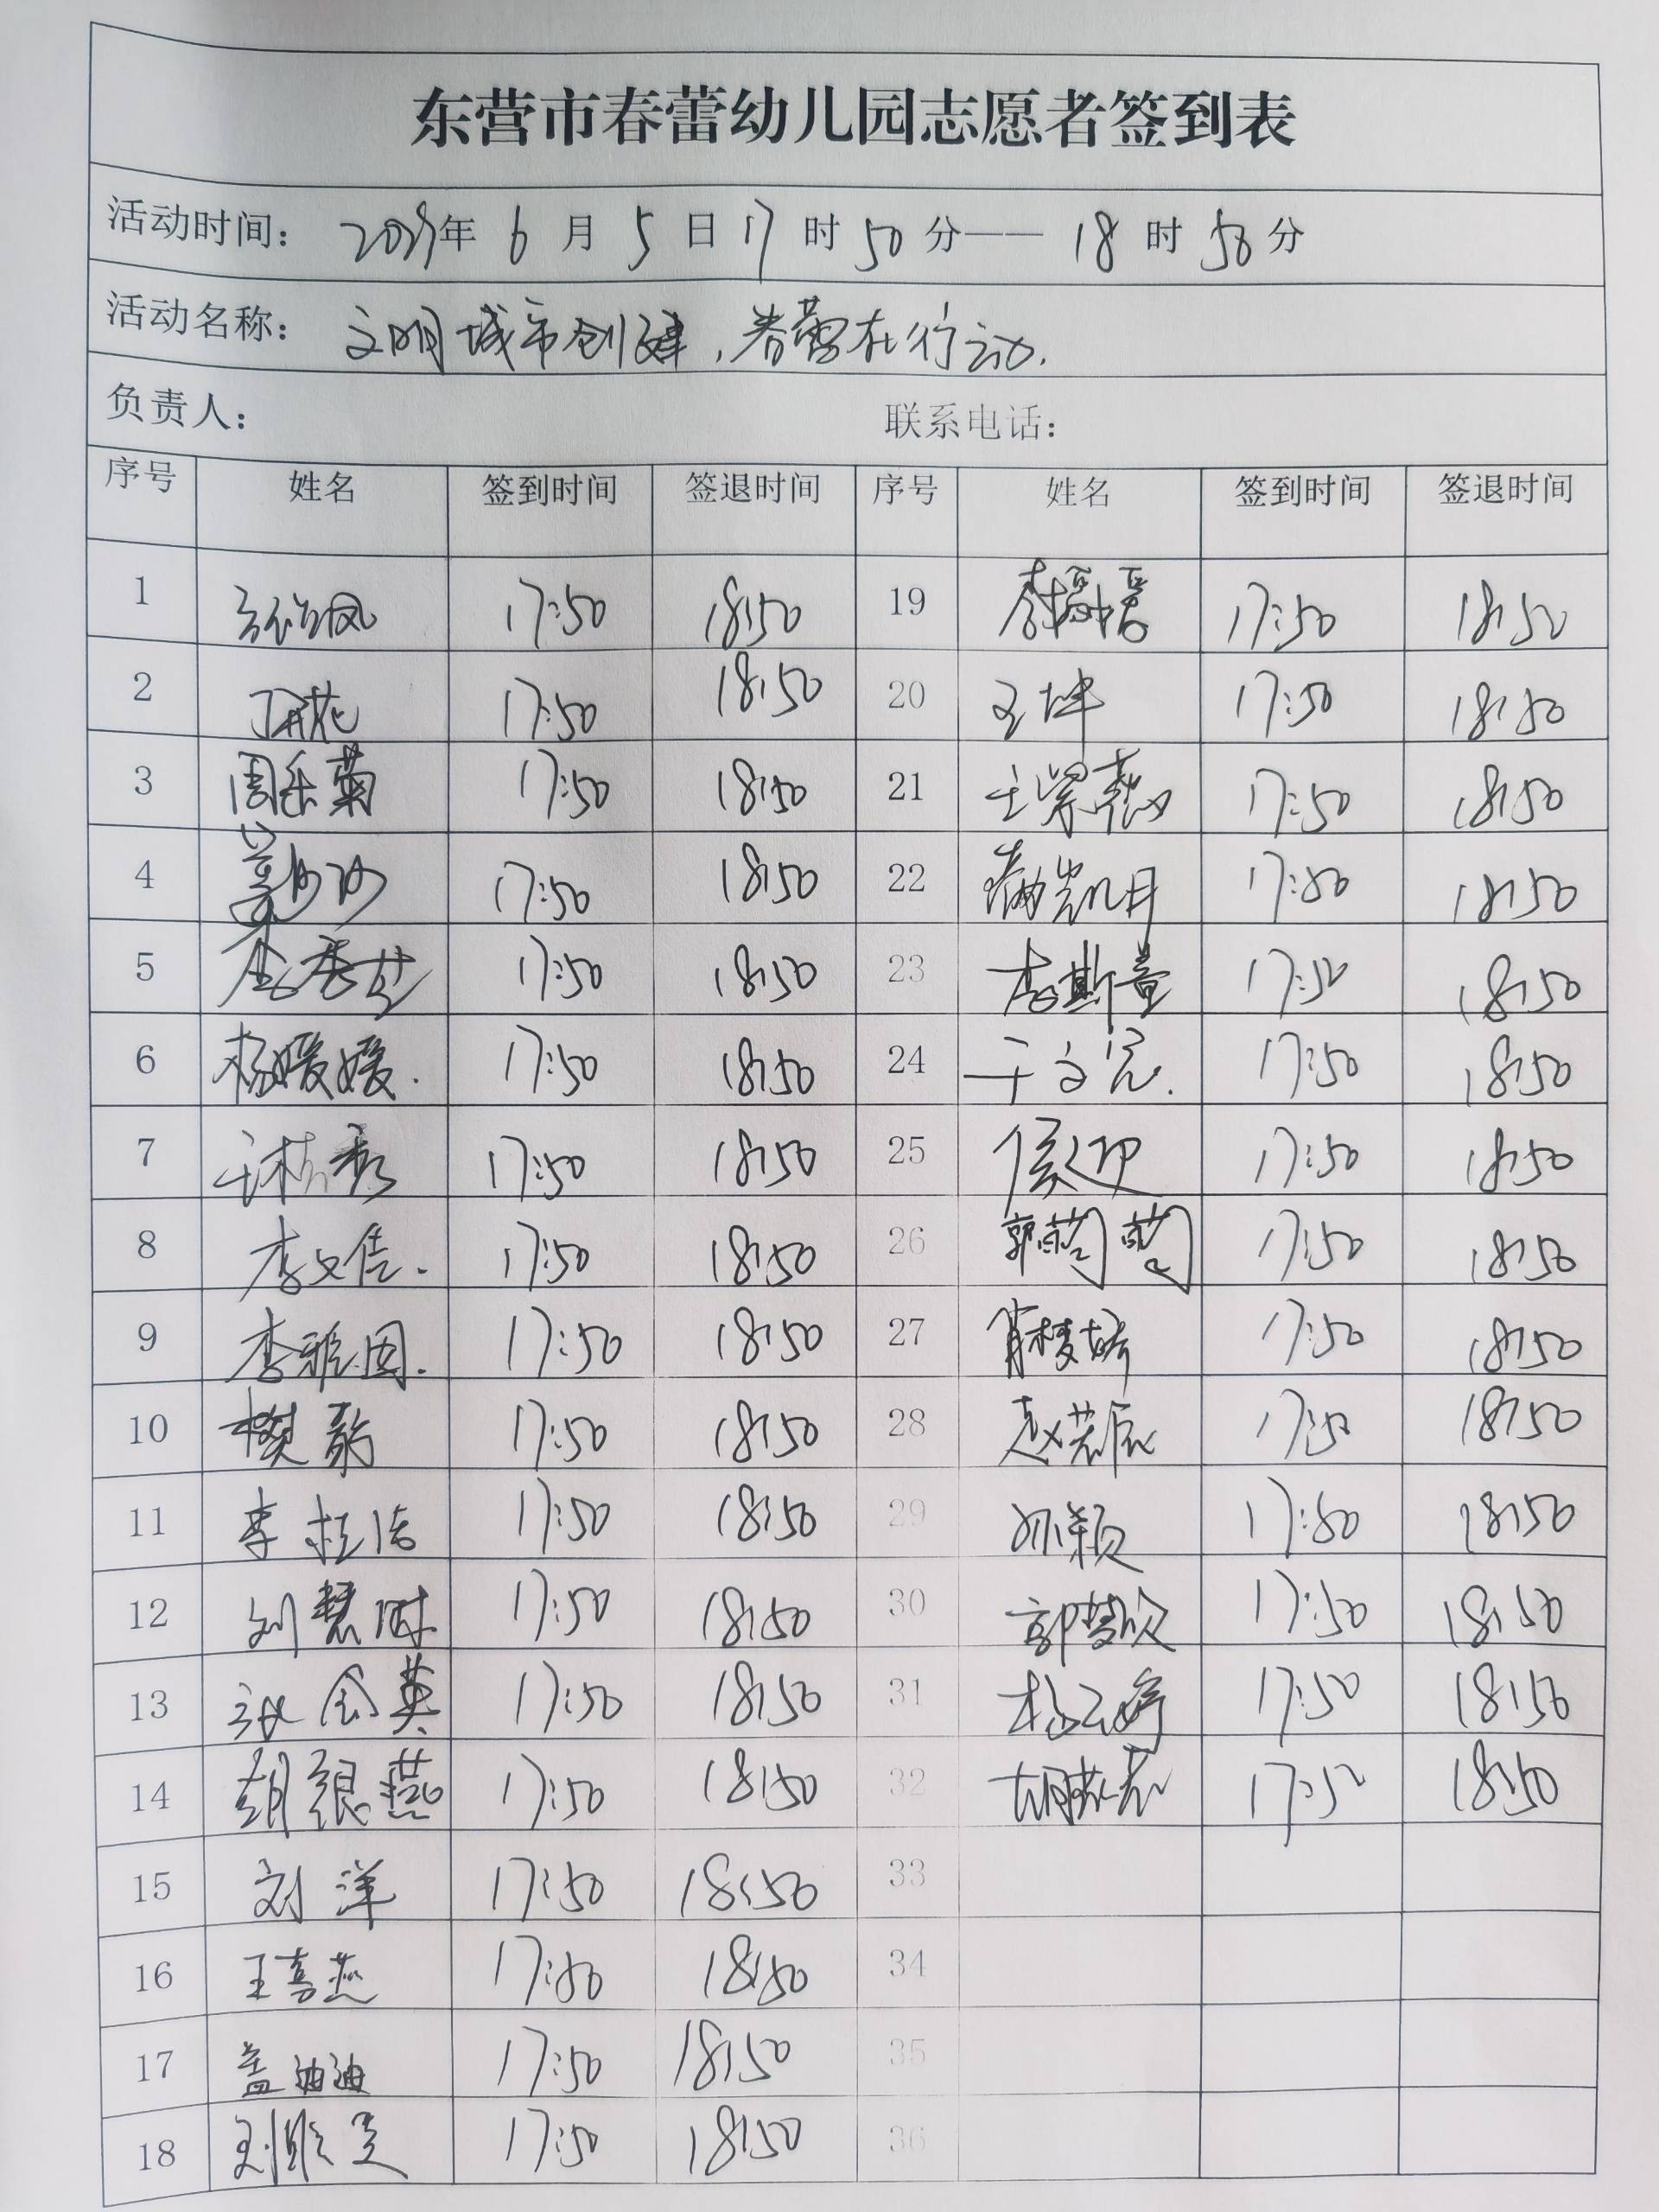 东营市春蕾幼儿园志愿者签到表
活动时间： 年 6 月 5 日 17 时 50 分—— 18 时 50 分
活动名称： 文明城市创建，春蕾在行动.
负责人： 联系电话：
序号 姓名 签到时间 签退时间 序号 姓名 签到时间 签退时间
1 17:50 18:50 19 17:50 18:50
2 17:50 18:50 20 王坤 17:50 18:50
3 周乐菊 17:50 18:50 21 17:50 18:50
4 17:50 18:50 22 17:50 18:50
5 17:50 18:50 23 李斯童 17:50 18:50
6 杨媛媛. 17:50 18:50 24 17:50 18:50
7 17:50 18:50 25 侯迎 17:50 18:50
8 李文佳. 17:50 18:50 26 郭蕾蕾 17:50 18:50
9 李雅囡. 17:50 18:50 27 肖梦婷 17:50 18:50
10 樊蔚 17:50 18:50 28 赵若辰 17:50 18:50
11 17:50 18:50 29 孙颖 17:50 18:50
12 刘慧琳 17:50 18:50 30 郭梦欣 17:50 18:50
13 张金英 17:50 18:50 31 杨云婷 17:50 18:50
14 胡银燕 17:50 18:50 32 17:50 18:50
15 刘洋 17:50 18:50 33
16 王喜燕 17:50 18:50 34
17 盖迪迪 17:50 18:50 35
18 17:50 18:50 36